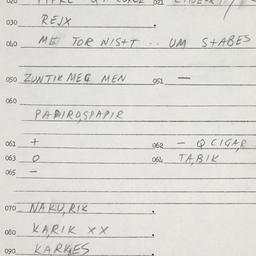 020 021
030 REJX
040 ME TOR NIS+T .. UM S+ABES
050 ZUNTIK MEG MEN 051 —
060
PAPIROSPAPIR
061 + 062 — Q CIGAR
063 O 064 TABIK
065 —
070 NAKU, RIK
080 KARIK XX
090 KARKGES